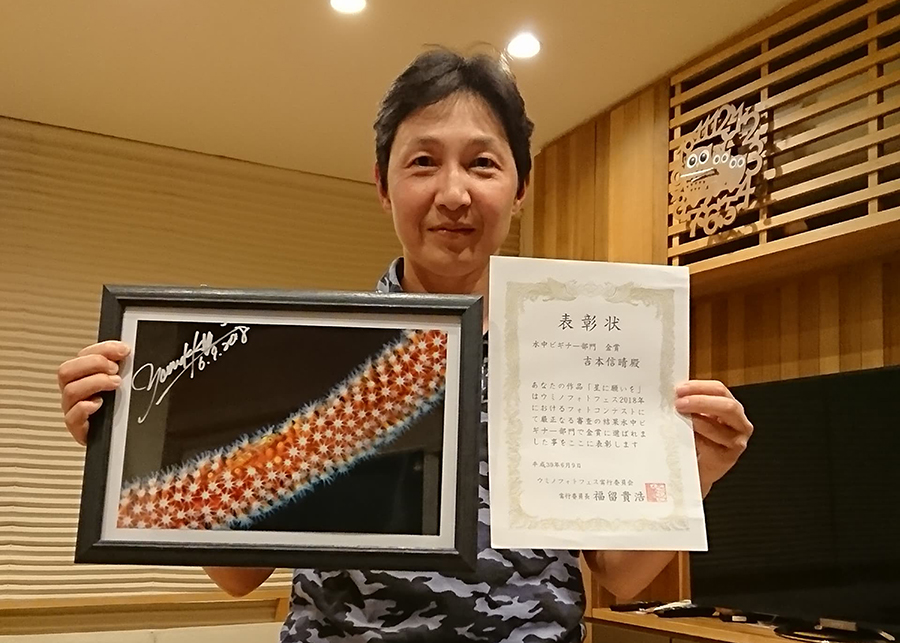 16.9.2018
11 12 1 2 3 4 5 6 7 8
表彰状
水中ビギナー部門 金賞
吉本信晴殿
あなたの作品「星に願いを」
はウミノフォトフェス2018年
におけるフォトコンテストに
て厳正なる審査の結果水中ビ
ギナー部門で金賞に選ばれま
した事をここに表彰します
平成30年6月9日
ウミノフォトフェス実行委員会
実行委員長 福留貴浩